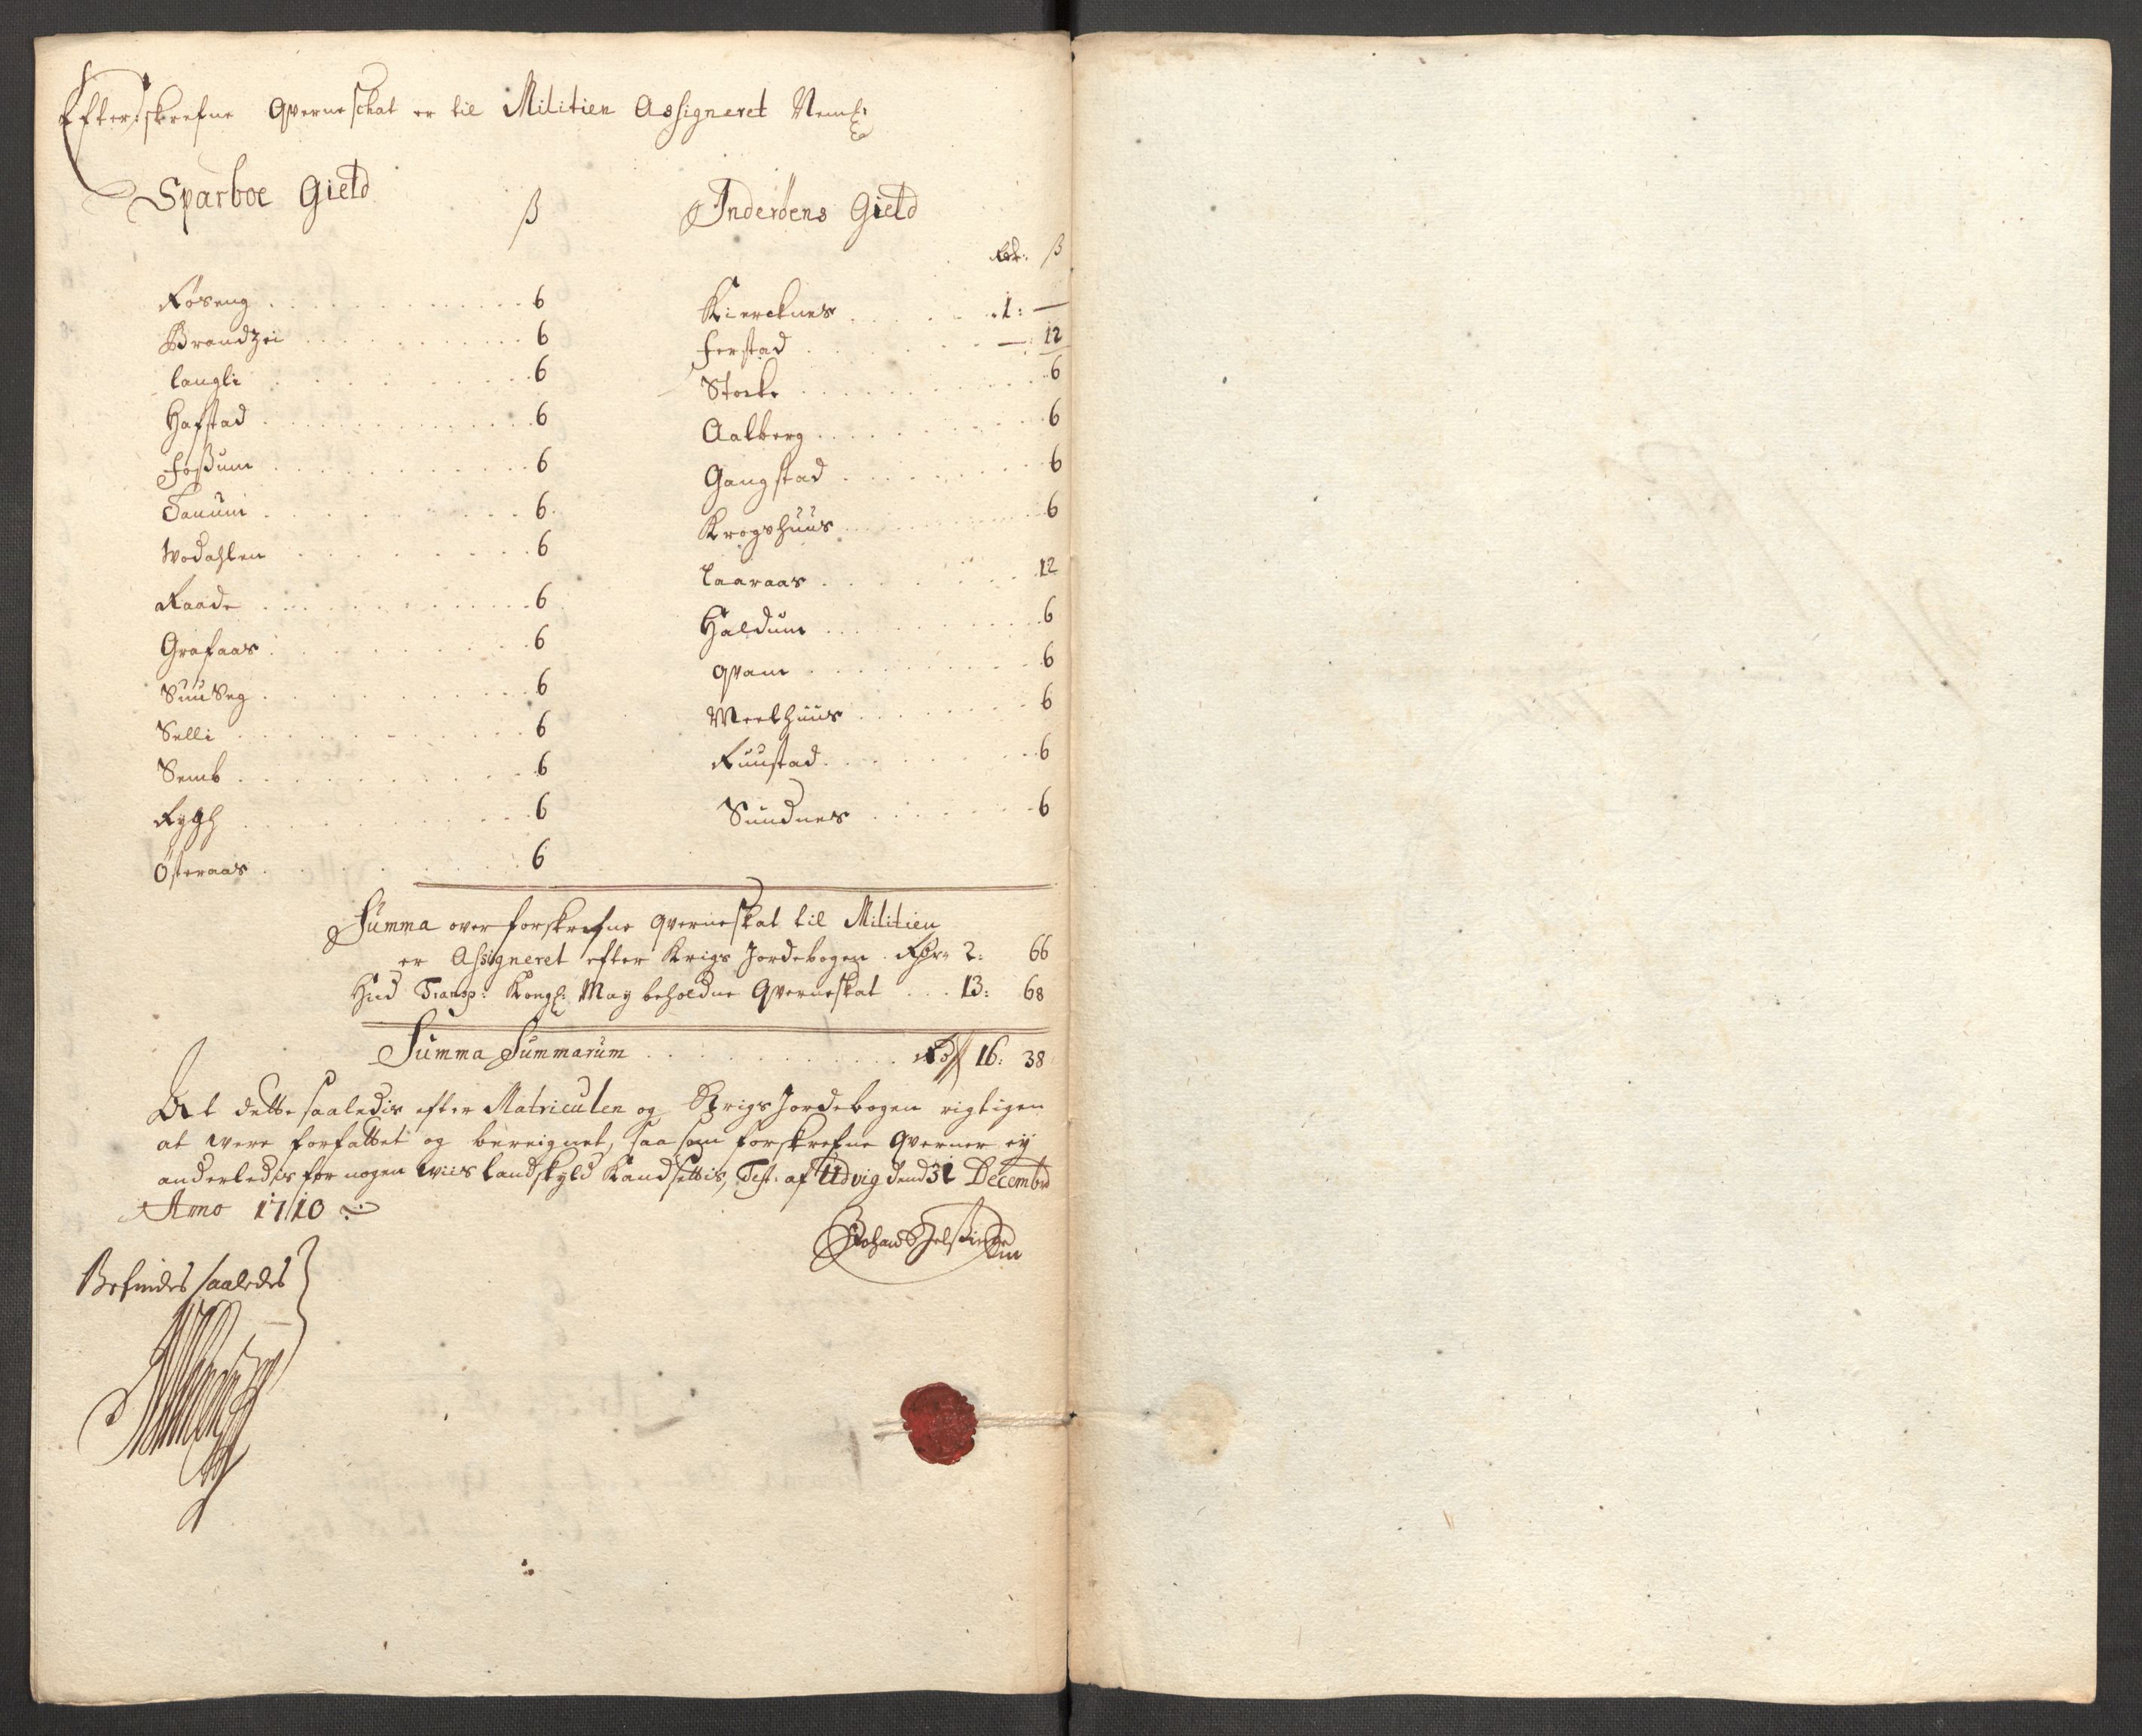 Efterskrefne Qverneschat er til Militien Assigneret Neml:
Sparboe Gield
ß
Røseng 6
Brandzei 6
Langli 6
Hafstad 6
Foßum 6
Tanum 6
Wodahlen 6
Raade 6
Grafaas 6
Selli 6
Semb 6
Rygh 6
Østeraas 6
Inderøens Gield
Rdr: ß
Kiercknes 1: —
Ferstad —: 12
Storke 6
Aalberg 6
Gangstad 6
Krogshuus 6
Laaraas 12
Haldum 6
Qvam 6
Meelhuus 6
Ruustad 6
Sundnes 6
Summa over forskrefne Qverneskat til Militien
er Assigneret efter Krigs Jordebogen Rdr 2: 66
Hid Transp: Kongl: May beholdne Qverneskat 13: 68
Summa Summarum Rdr 16: 38
At dette saaledis efter Matriculen og Krigs Jordebogen rigtigen
at were forfattet og bereignet, saa som forskrefne Qverner ej
anderledis for nogen wiis Landskyld Kand settis, Test. af Udvig dend 31 Decembr
Anno 1710
Befindes saaledes